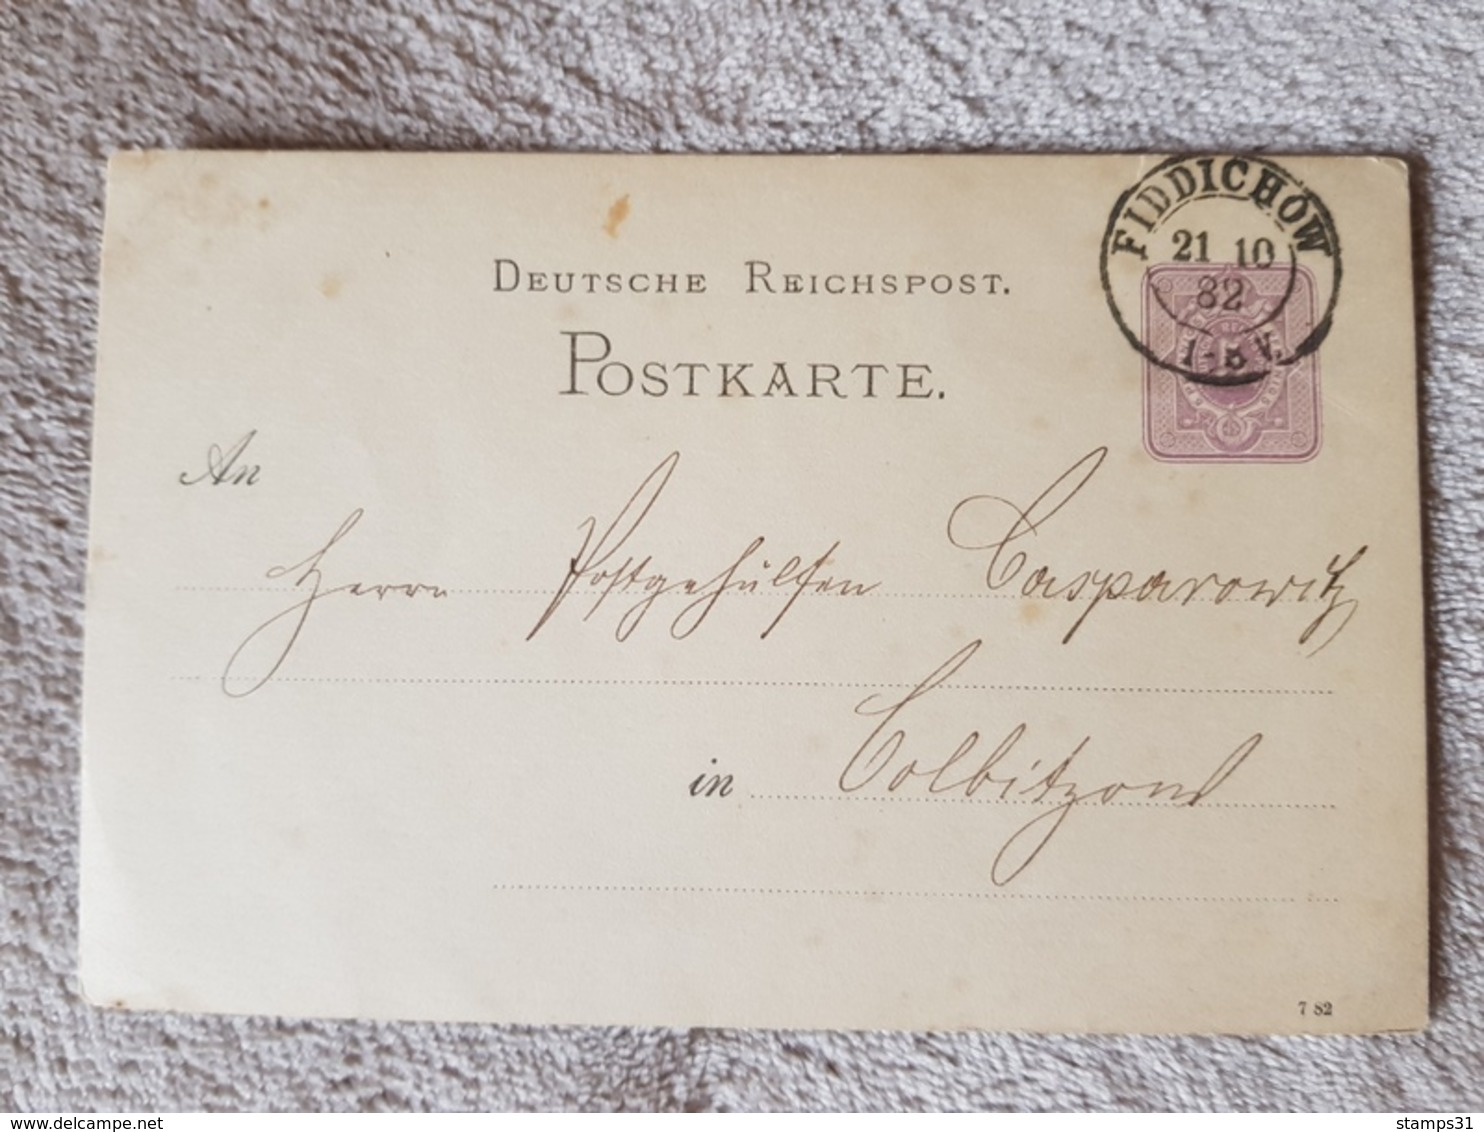 FIDDICHOW
21 10
82
DEUTSCHE REICHSPOST.
POSTKARTE.
An
Herrn Postgehülfen Casparowitz
in Colbitzow
7 82
stamps31
delcampe.net